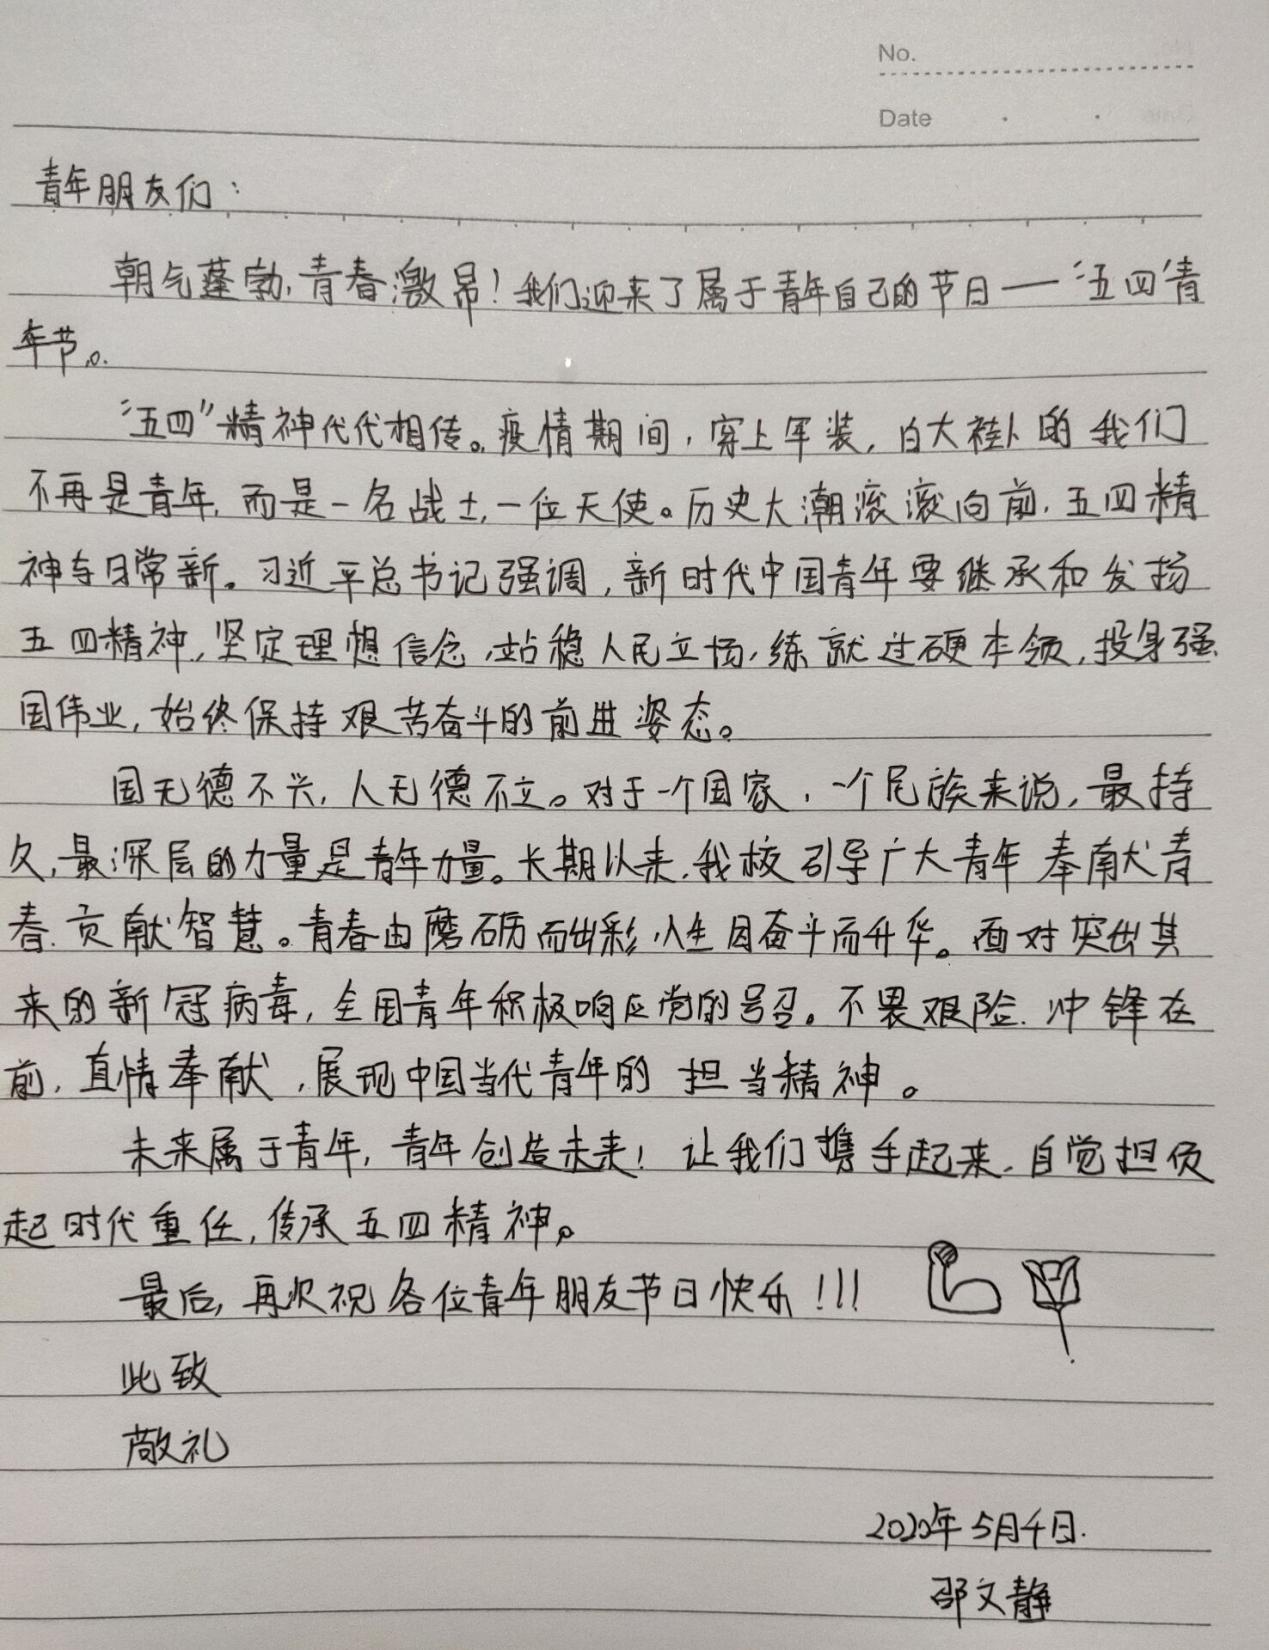 No.
Date
青年朋友们：
朝气蓬勃，青春激昂！我们迎来了属于青年自己的节日——“五四”青
年节。
“五四”精神代代相传。疫情期间，穿上军装，白大褂的我们
不再是青年，而是一名战士，一位天使。历史大潮滚滚向前，五四精
神与日常新。习近平总书记强调，新时代中国青年要继承和发扬
五四精神，坚定理想信念，站稳人民立场，练就过硬本领，投身强
国伟业，始终保持艰苦奋斗的前进姿态。
国无德不兴，人无德不立。对于一个国家，一个民族来说，最持
久，最深层的力量是青年力量。长期以来，我校引导广大青年奉献青
春，贡献智慧。青春由磨砺而出彩，人生因奋斗而升华。面对突出其
来的新冠病毒，全国青年积极响应党的号召。不畏艰险，冲锋在
前，真情奉献，展现中国当代青年的担当精神。
未来属于青年，青年创造未来！让我们携手起来，自觉担负
起时代重任，传承五四精神。
最后，再次祝各位青年朋友节日快乐！！！
此致
敬礼
2020年5月4日.
邵文静